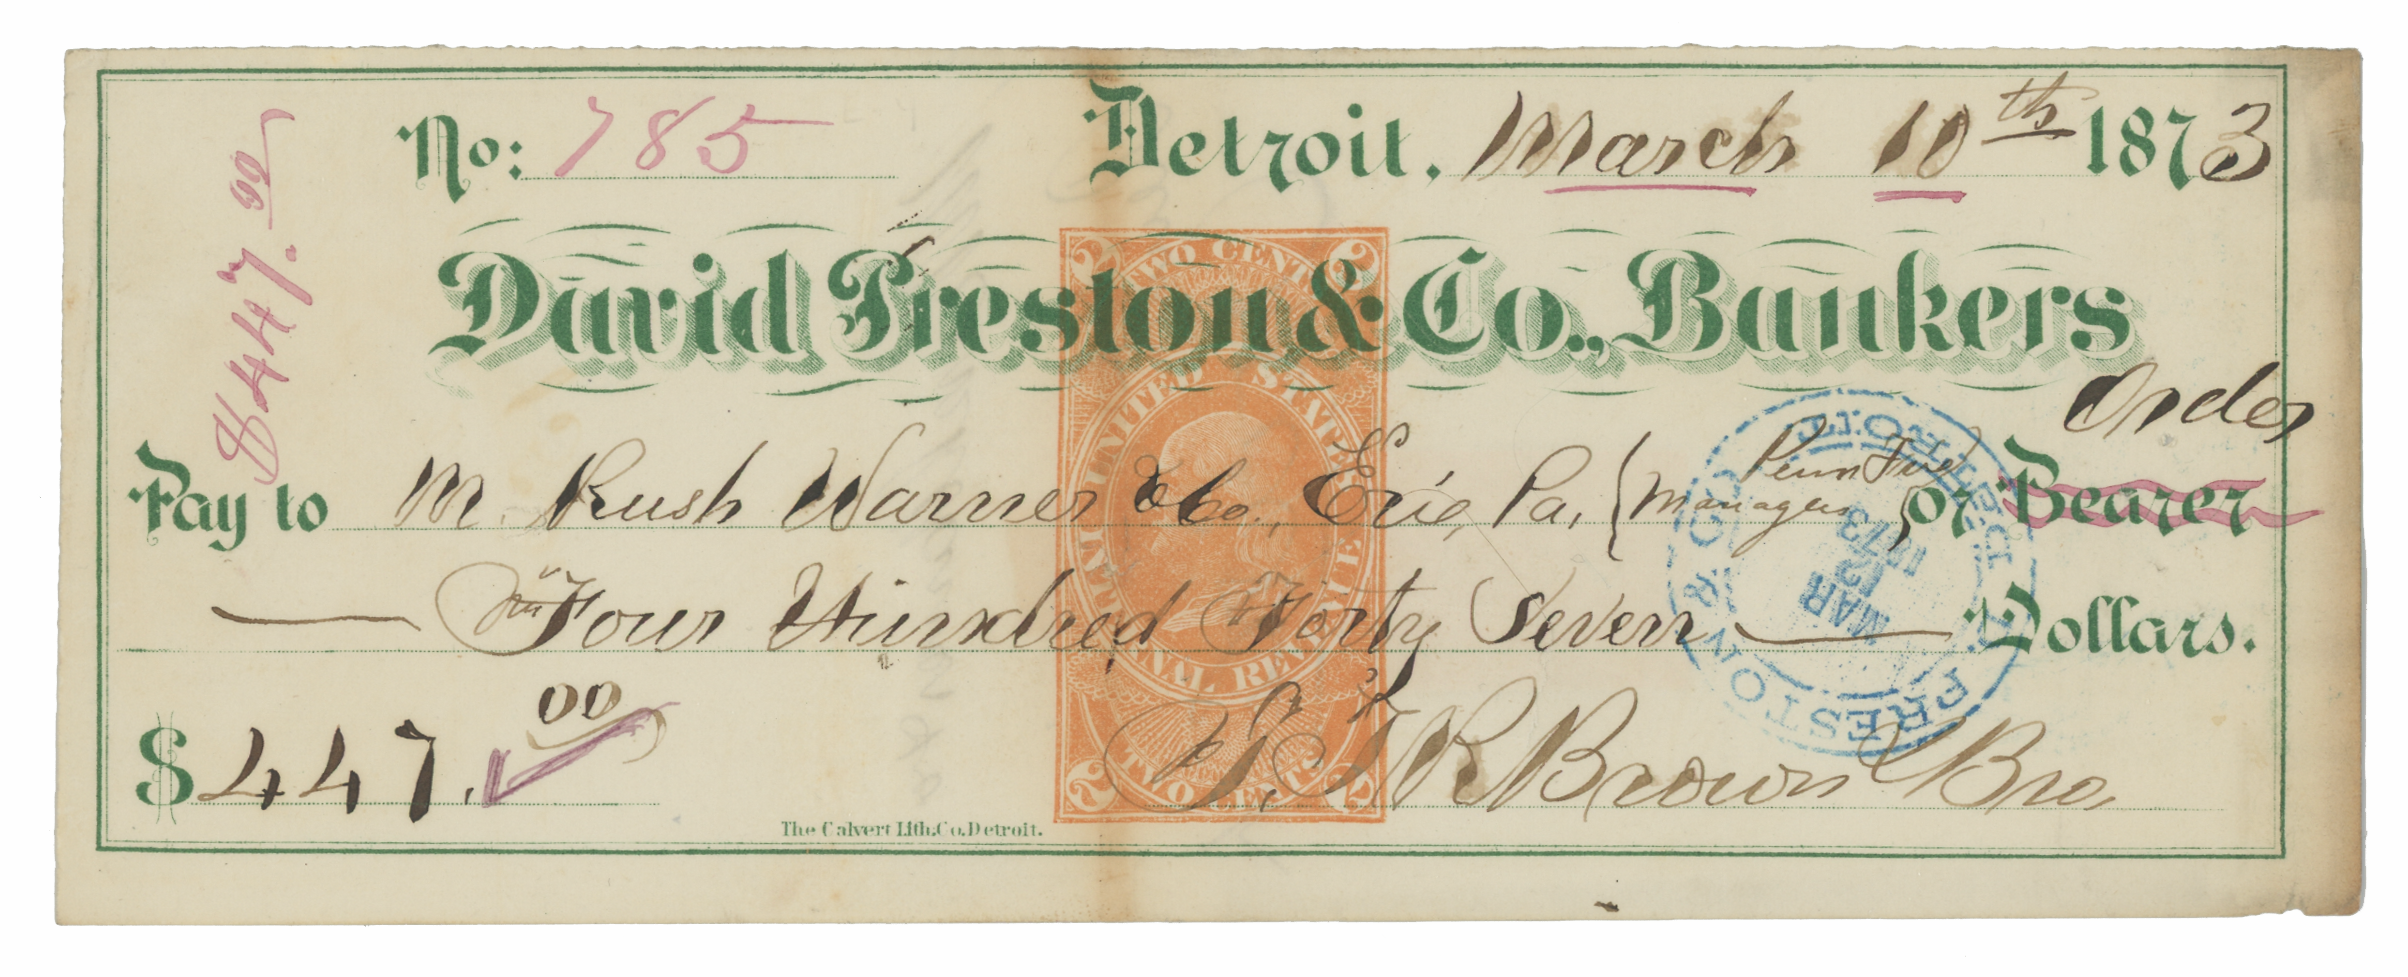 No: 785 Detroit, March 10th 1873
$447.00
David Preston & Co., Bankers
Order
Pay to M. Rush Warner & Co., Erie, Pa, (Managers Penn ) or Bearer
Four Hundred Forty Seven Dollars.
$447.00
R Brown & Bro,
The Calvert Lith. Co. Detroit.
2 TWO CENTS 2
UNITED STATES INTERNAL REVENUE
2 TWO CENTS 2
D. PRESTON & CO. DETROIT
MAR
1873